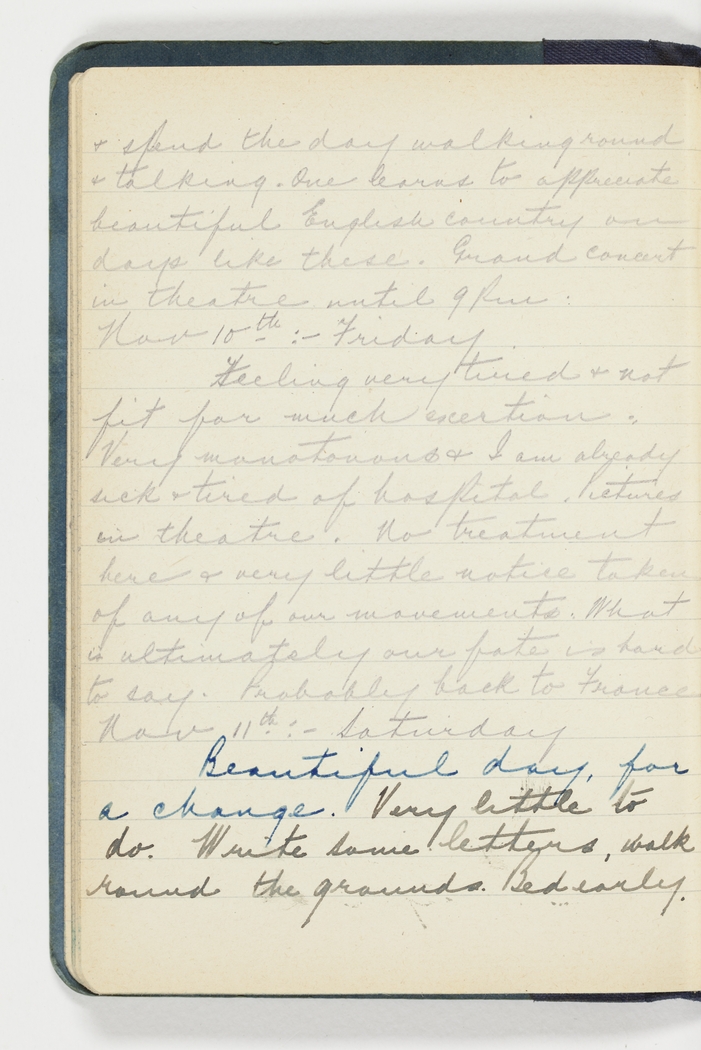 & spend the day walking round
& talking. One learns to appreciate
beautiful English country on
days like these. Grand concert
in theatre until 9 Pm.
Nov 10th :- Friday
Feeling very tired & not
fit for much exertion.
Very monotonous & I am already
sick & tired of hospital. Pictures
in theatre. No treatment
here & very little notice taken
of any of our movements. What
is ultimately our fate is hard
to say. Probably back to France
Nov 11th :- Saturday
Beautiful day, for
a change. Very little to
do. Write some letters, walk
round the grounds. Bed early.